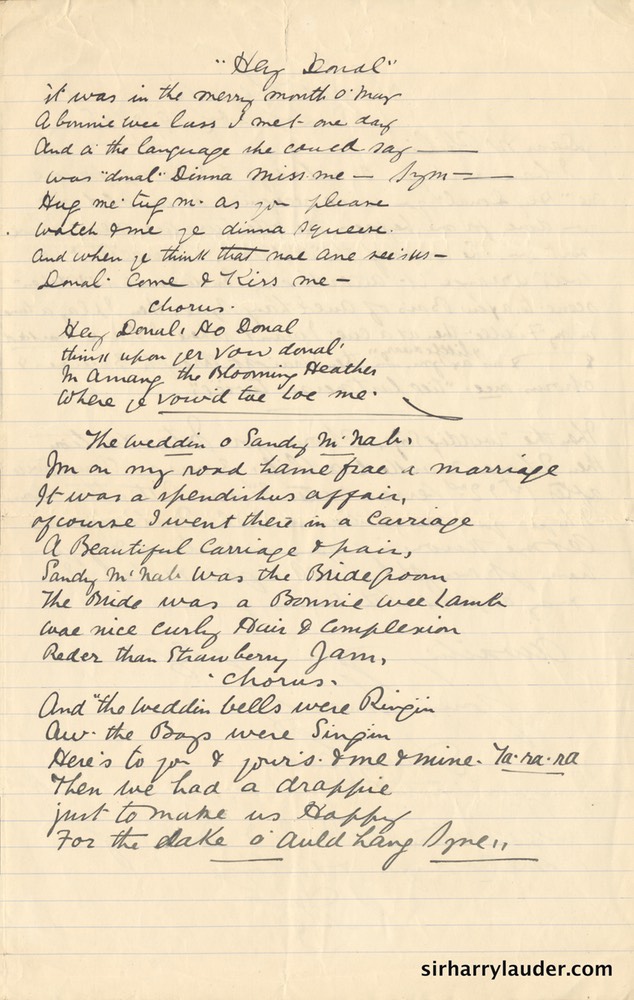 "Hey Donal"
it was in the merry month o' May
A bonnie wee lass I met one day
And a' the language she could say —
was "donal" Dinna miss me — Sym —
Hug me. tug m. as you please
watch & me ye dinna squeese.
And when ye think that nae ane sees us —
Donal. Come & Kiss me —
chorus.
Hey Donal, Ho Donal
think upon yer vow donal'
In Amang the Blooming Heather
Where ye vow'd tae Loe me.
The weddin o Sandy McNab.
I'm on my road hame frae a marriage
It was a spendishus affair,
ofcourse I went there in a Carriage
A Beautiful Carriage & pair,
Sandy McNab was the Bridegroom
The Bride was a Bonnie wee Lamb
wae nice curly Hair & Complexion
Reder than Strawberry Jam,
chorus.
And "the weddin bells were Ringin
Aw. the Boys were Singin
Here's to you & your's. & me & mine. Ta. ra. ra
Then we had a drappie
just to make us Happy
For the sake o' Auld Lang Syne!!
sirharrylauder.com